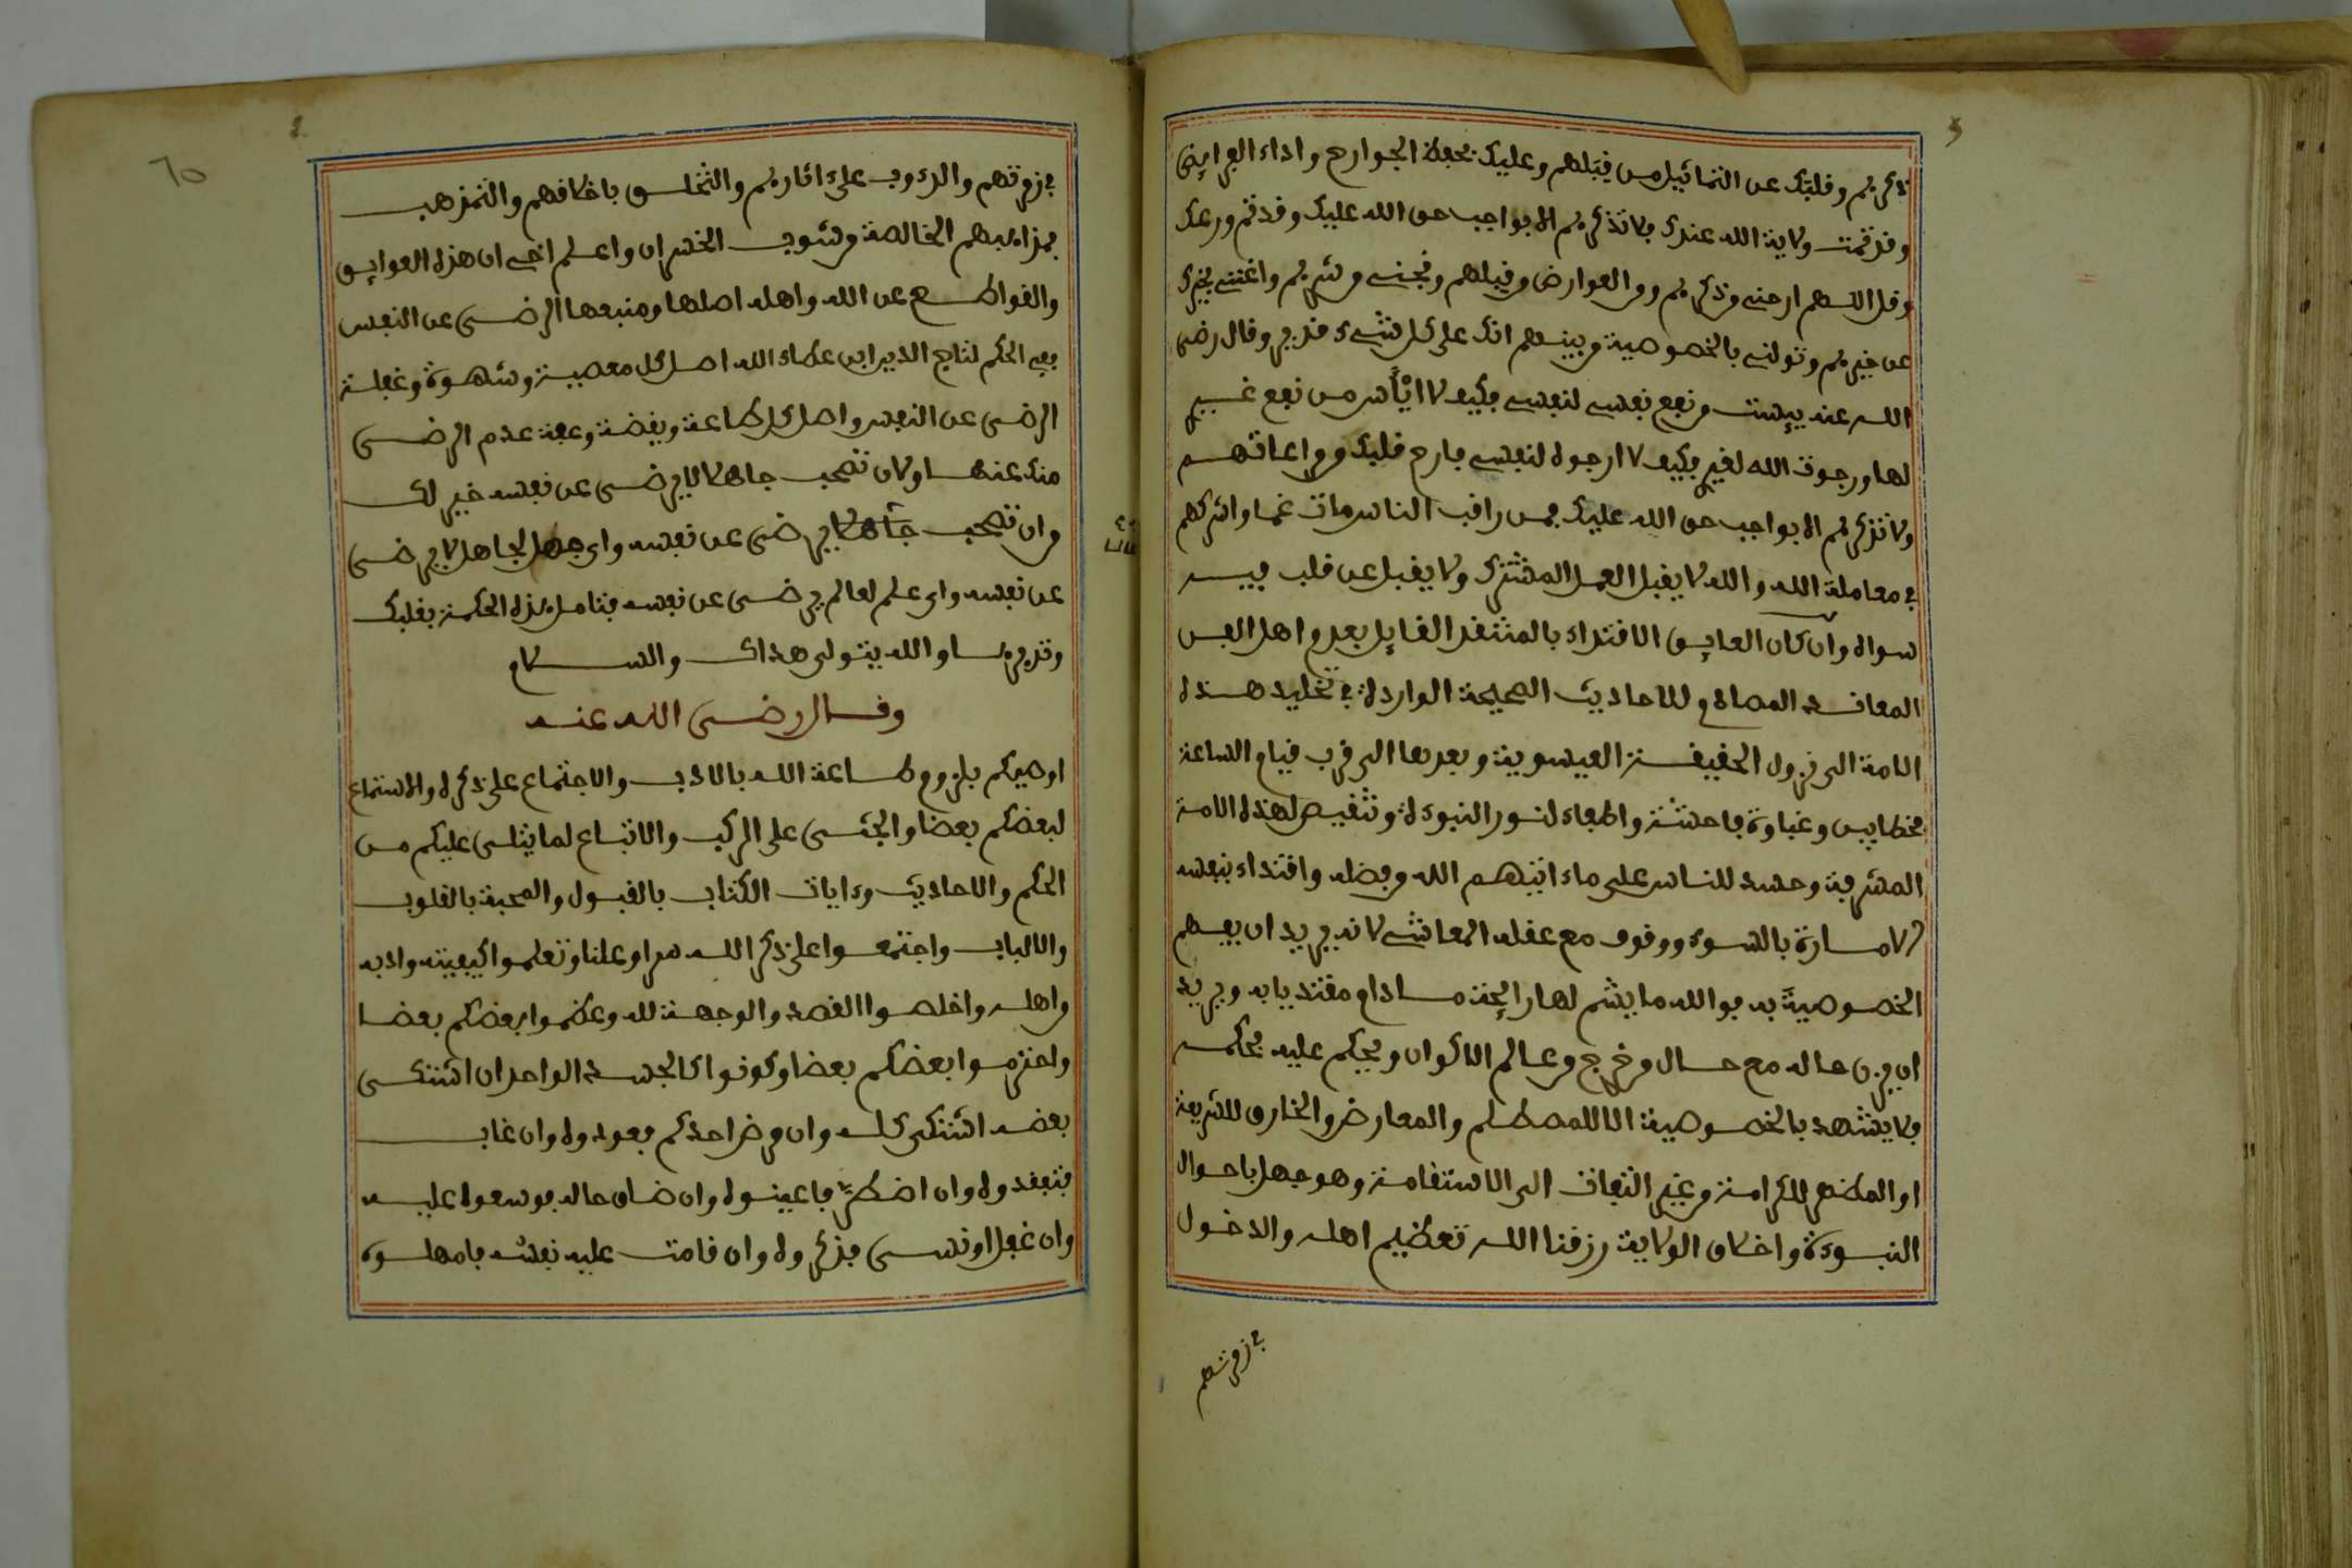 ذكرهم وقلبك عن التمائيل من قبلهم وعليك بحفظ الجوارح واداء الفرايض
وقد تمت ولاية الله عندك ولا تذكرهم الا بواجب حق الله عليك وقد تم ورعك
وقل اللهم ارحني من ذكرهم ومن العوارض من قبلهم ونجني من شرهم واغنني بخيرك
عن خيرهم وتولني بالخصوصية من بينهم انك على كل شيء قدير وقال رضي
الله عنه ييست من نفع نفسي لنفسي فكيف لا ايأس من نفع غيري
لها ورجوت الله لغيري فكيف لا ارجوه لنفسي فارح قلبك من مراعاتهم
ولا تذكرهم الا بواجب حق الله عليك فمن راقب الناس مات غما واشركهم
في معاملة الله والله لا يقبل العمل المشترك ولا يقبل عن قلب فيه
سواه وان كان العايق الاقتداء بالمنتقد القايل بعدم اهل الفن
المعاند المصادم للاحاديث الصحيحة الواردة في تخليد هذه
الامة الى نزول الحقيقة العيسوية وبعدها الى قرب قيام الساعة
فخطا بين وغباوة فاحشة واطفاء لنور النبوءة وتنقيص لهذه الامة
المشرفة وحسد للناس على ما ءاتيهم الله من فضله واقتداء بنفسه
الامارة بالسوء ووقوف مع عقله المعاشي لانه يريد ان يفهم
الخصوصية به فوالله ما يشم لها رايحة ما دام مقتديا به ويريد
ان يزن حاله مع حال من خرج من عالم الاكوان ويحكم عليه بحكمه
فلا يشهد بالخصوصية الا للمصطلم والمعارض والخارق للشريعة
او المظهر للكرامة من غير التفات الى الاستقامة وهو جهل باحوال
النبوءة واخلاق الولاية رزقنا الله تعظيم اهله والدخول
في زمرتهم
في زمرتهم والدءوب على اثارهم والتخلق باخلاقهم والتمذهب
بمذاهبهم الخالصة من شوب الخسران واعلم اخي ان هذه العوايق
والقواطع عن الله واهله اصلها ومنبعها الرضى عن النفس
ففي الحكم لتاج الدين ابن عطاء الله اصل كل معصية وشهوة وغفلة
الرضى عن النفس واصل كل طاعة ويقضة وعفة عدم الرضى
منك عنها ولان تصحب جاهلا لا يرضى عن نفسه خير لك
من ان تصحب عالما يرضى عن نفسه واي جهل لجاهل لا يرضى
عن نفسه واي علم لعالم يرضى عن نفسه فتامل هذه الحكمة بقلبك
وتدبرها والله يتولى هداك والسلام
وقال رضى الله عنه
اوصيكم بلزوم طاعة الله بالادب والاجتماع على ذكره والاستماع
لبعضكم بعضا والجثى على الركب والاتباع لما يتلى عليكم من
الحكم والاحاديث وءايات الكتاب بالقبول والمحبة بالقلوب
والالباب واجتمعوا على ذكر الله سرا وعلنا وتعلموا كيفيته وادبه
واهله واخلصوا القصد والوجهة لله وعظموا بعضكم بعضا
واحترموا بعضكم بعضا وكونوا كالجسد الواحد ان اشتكى
بعضه اشتكى كله وان مرض احدكم فعودوه وان غاب
فتفقدوه وان اضطر فاعينوه وان ضاق حاله فوسعوا عليه
وان غفل او نسى فذكروه وان قامت عليه نفسه فامهلوه